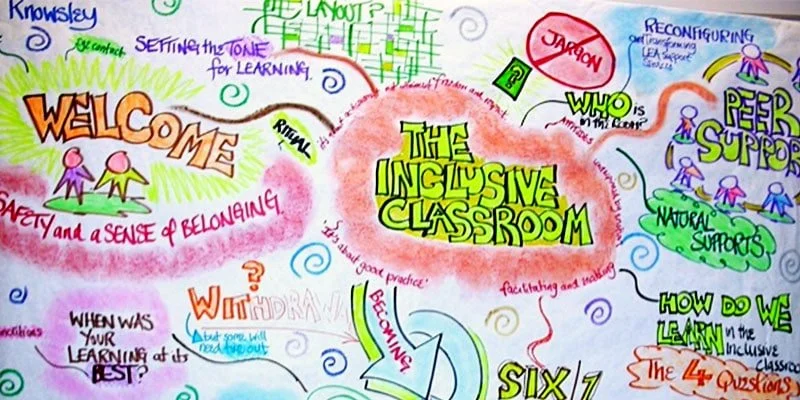 Knowsley
LAYOUT?
eye contact
SETTING the TONE
for LEARNING.
WELCOME
RITUAL
SAFETY and a SENSE of BELONGING.
THE
INCLUSIVE
CLASSROOM
'It's about good practice'
facilitating and enabling
JARGON
?
WHO is
in the Room?
RECONFIGURING
and Transforming
LEA Support
Services
PEER
SUPPOR
NATURAL
SUPPORTS
HOW DO WE
LEARN in the
Inclusive
Classroo
The 4 Questions
?
WITHDRAWA
but some will
need time out
WHEN WAS
YOUR
LEARNING at its
BEST?
BECOMING
SIX/1